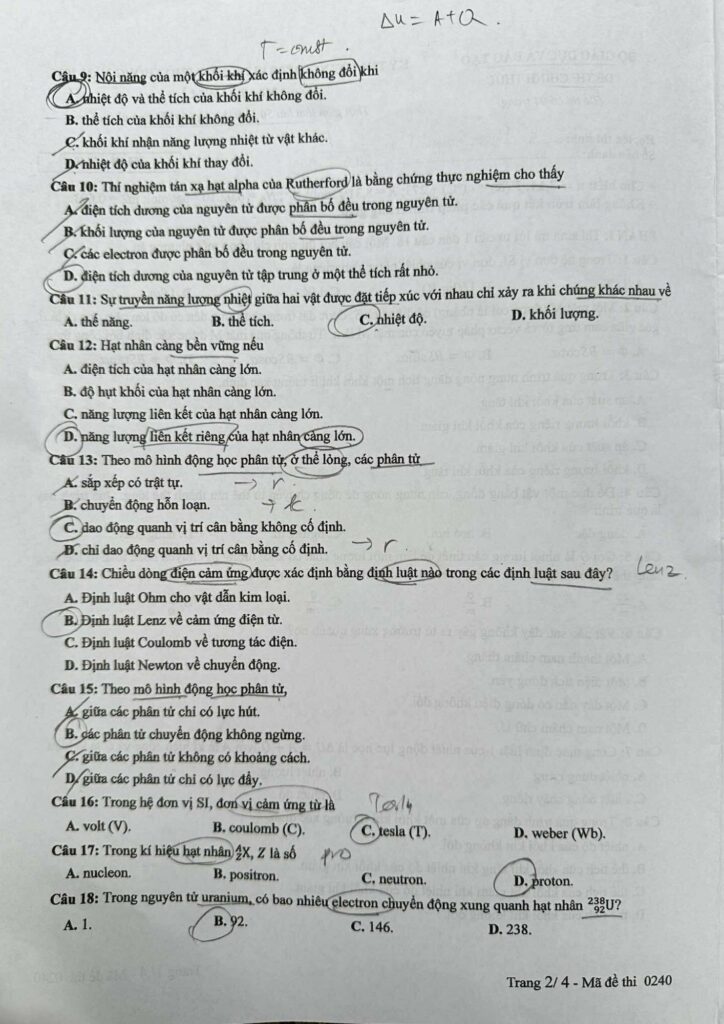 Δu = A+Q.
T = const.
Câu 9: Nội năng của một khối khí xác định không đổi khi
A. nhiệt độ và thể tích của khối khí không đổi.
B. thể tích của khối khí không đổi.
C. khối khí nhận năng lượng nhiệt từ vật khác.
D. nhiệt độ của khối khí thay đổi.
Câu 10: Thí nghiệm tán xạ hạt alpha của Rutherford là bằng chứng thực nghiệm cho thấy
A. điện tích dương của nguyên tử được phân bố đều trong nguyên tử.
B. khối lượng của nguyên tử được phân bố đều trong nguyên tử.
C. các electron được phân bố đều trong nguyên tử.
D. điện tích dương của nguyên tử tập trung ở một thể tích rất nhỏ.
Câu 11: Sự truyền năng lượng nhiệt giữa hai vật được đặt tiếp xúc với nhau chỉ xảy ra khi chúng khác nhau về
A. thế năng. B. thể tích. C. nhiệt độ. D. khối lượng.
Câu 12: Hạt nhân càng bền vững nếu
A. điện tích của hạt nhân càng lớn.
B. độ hụt khối của hạt nhân càng lớn.
C. năng lượng liên kết của hạt nhân càng lớn.
D. năng lượng liên kết riêng của hạt nhân càng lớn.
Câu 13: Theo mô hình động học phân tử, ở thể lỏng, các phân tử
A. sắp xếp có trật tự. → r.
B. chuyển động hỗn loạn. → k.
C. dao động quanh vị trí cân bằng không cố định.
D. chỉ dao động quanh vị trí cân bằng cố định. → r.
Câu 14: Chiều dòng điện cảm ứng được xác định bằng định luật nào trong các định luật sau đây? Lenz
A. Định luật Ohm cho vật dẫn kim loại.
B. Định luật Lenz về cảm ứng điện từ.
C. Định luật Coulomb về tương tác điện.
D. Định luật Newton về chuyển động.
Câu 15: Theo mô hình động học phân tử,
A. giữa các phân tử chỉ có lực hút.
B. các phân tử chuyển động không ngừng.
C. giữa các phân tử không có khoảng cách.
D. giữa các phân tử chỉ có lực đẩy.
Câu 16: Trong hệ đơn vị SI, đơn vị cảm ứng từ là
A. volt (V). B. coulomb (C). C. tesla (T). D. weber (Wb).
Câu 17: Trong kí hiệu hạt nhân ᴬ_ZX, Z là số pro
A. nucleon. B. positron. C. neutron. D. proton.
Câu 18: Trong nguyên tử uranium, có bao nhiêu electron chuyển động xung quanh hạt nhân ²³⁸₉₂U?
A. 1. B. 92. C. 146. D. 238.
Trang 2/ 4 - Mã đề thi 0240